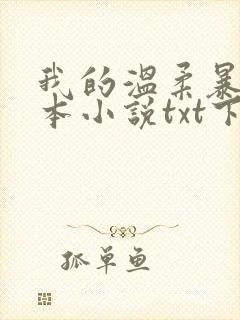 我的温柔暴
本小说txt下
孤单鱼